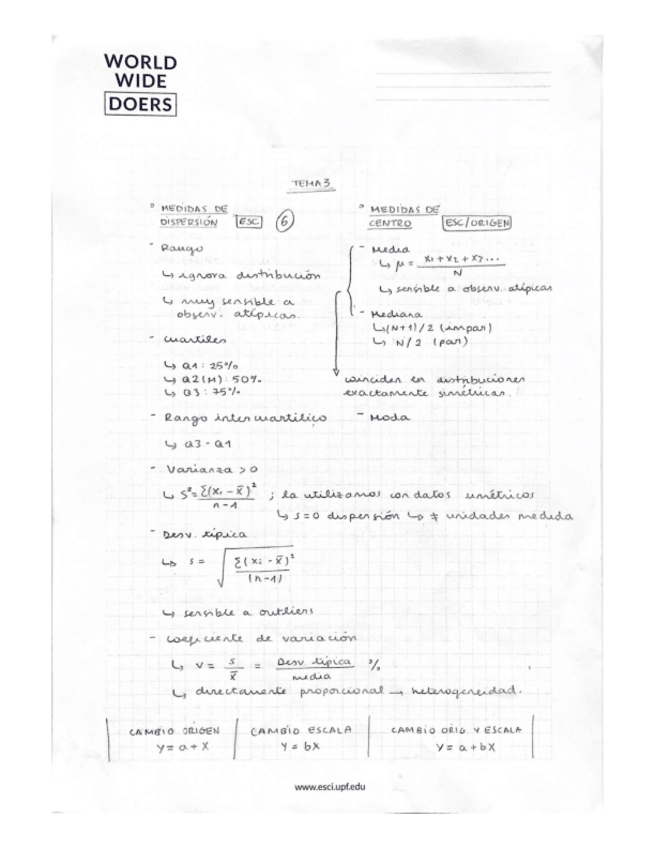 WORLD
WIDE
DOERS
TEMA 3
° MEDIDAS DE
DISPERSIÓN ESC 6
- Rango
↳ ignora distribución
↳ muy sensible a
observ. atípicas.
- cuartiles
↳ Q1 : 25%
↳ Q2 (M) : 50%
↳ Q3 : 75%
- Rango intercuartílico
↳ Q3 - Q1
° MEDIDAS DE
CENTRO ESC/ORIGEN
- Media
↳ μ = x1 + x2 + x3... / N
↳ sensible a observ. atípicas
- Mediana
↳ (N+1)/2 (impar)
↳ N/2 (par)
coinciden en distribuciones
exactamente simétricas.
- Moda
- Varianza > 0
↳ S² = Σ(xi - x̄)² / n-1 ; la utilizamos con datos simétricos
↳ s=0 dispersión ↳ ≠ unidades medida
- Desv. típica
↳ s = √ Σ(xi - x̄)² / (n-1)
↳ sensible a outliers
- coeficiente de variación
↳ v = s / x̄ = Desv. típica / media %
↳ directamente proporcional → heterogeneidad.
CAMBIO ORIGEN
Y = a + X
CAMBIO ESCALA
Y = bX
CAMBIO ORIG Y ESCALA
Y = a + bX
www.esci.upf.edu